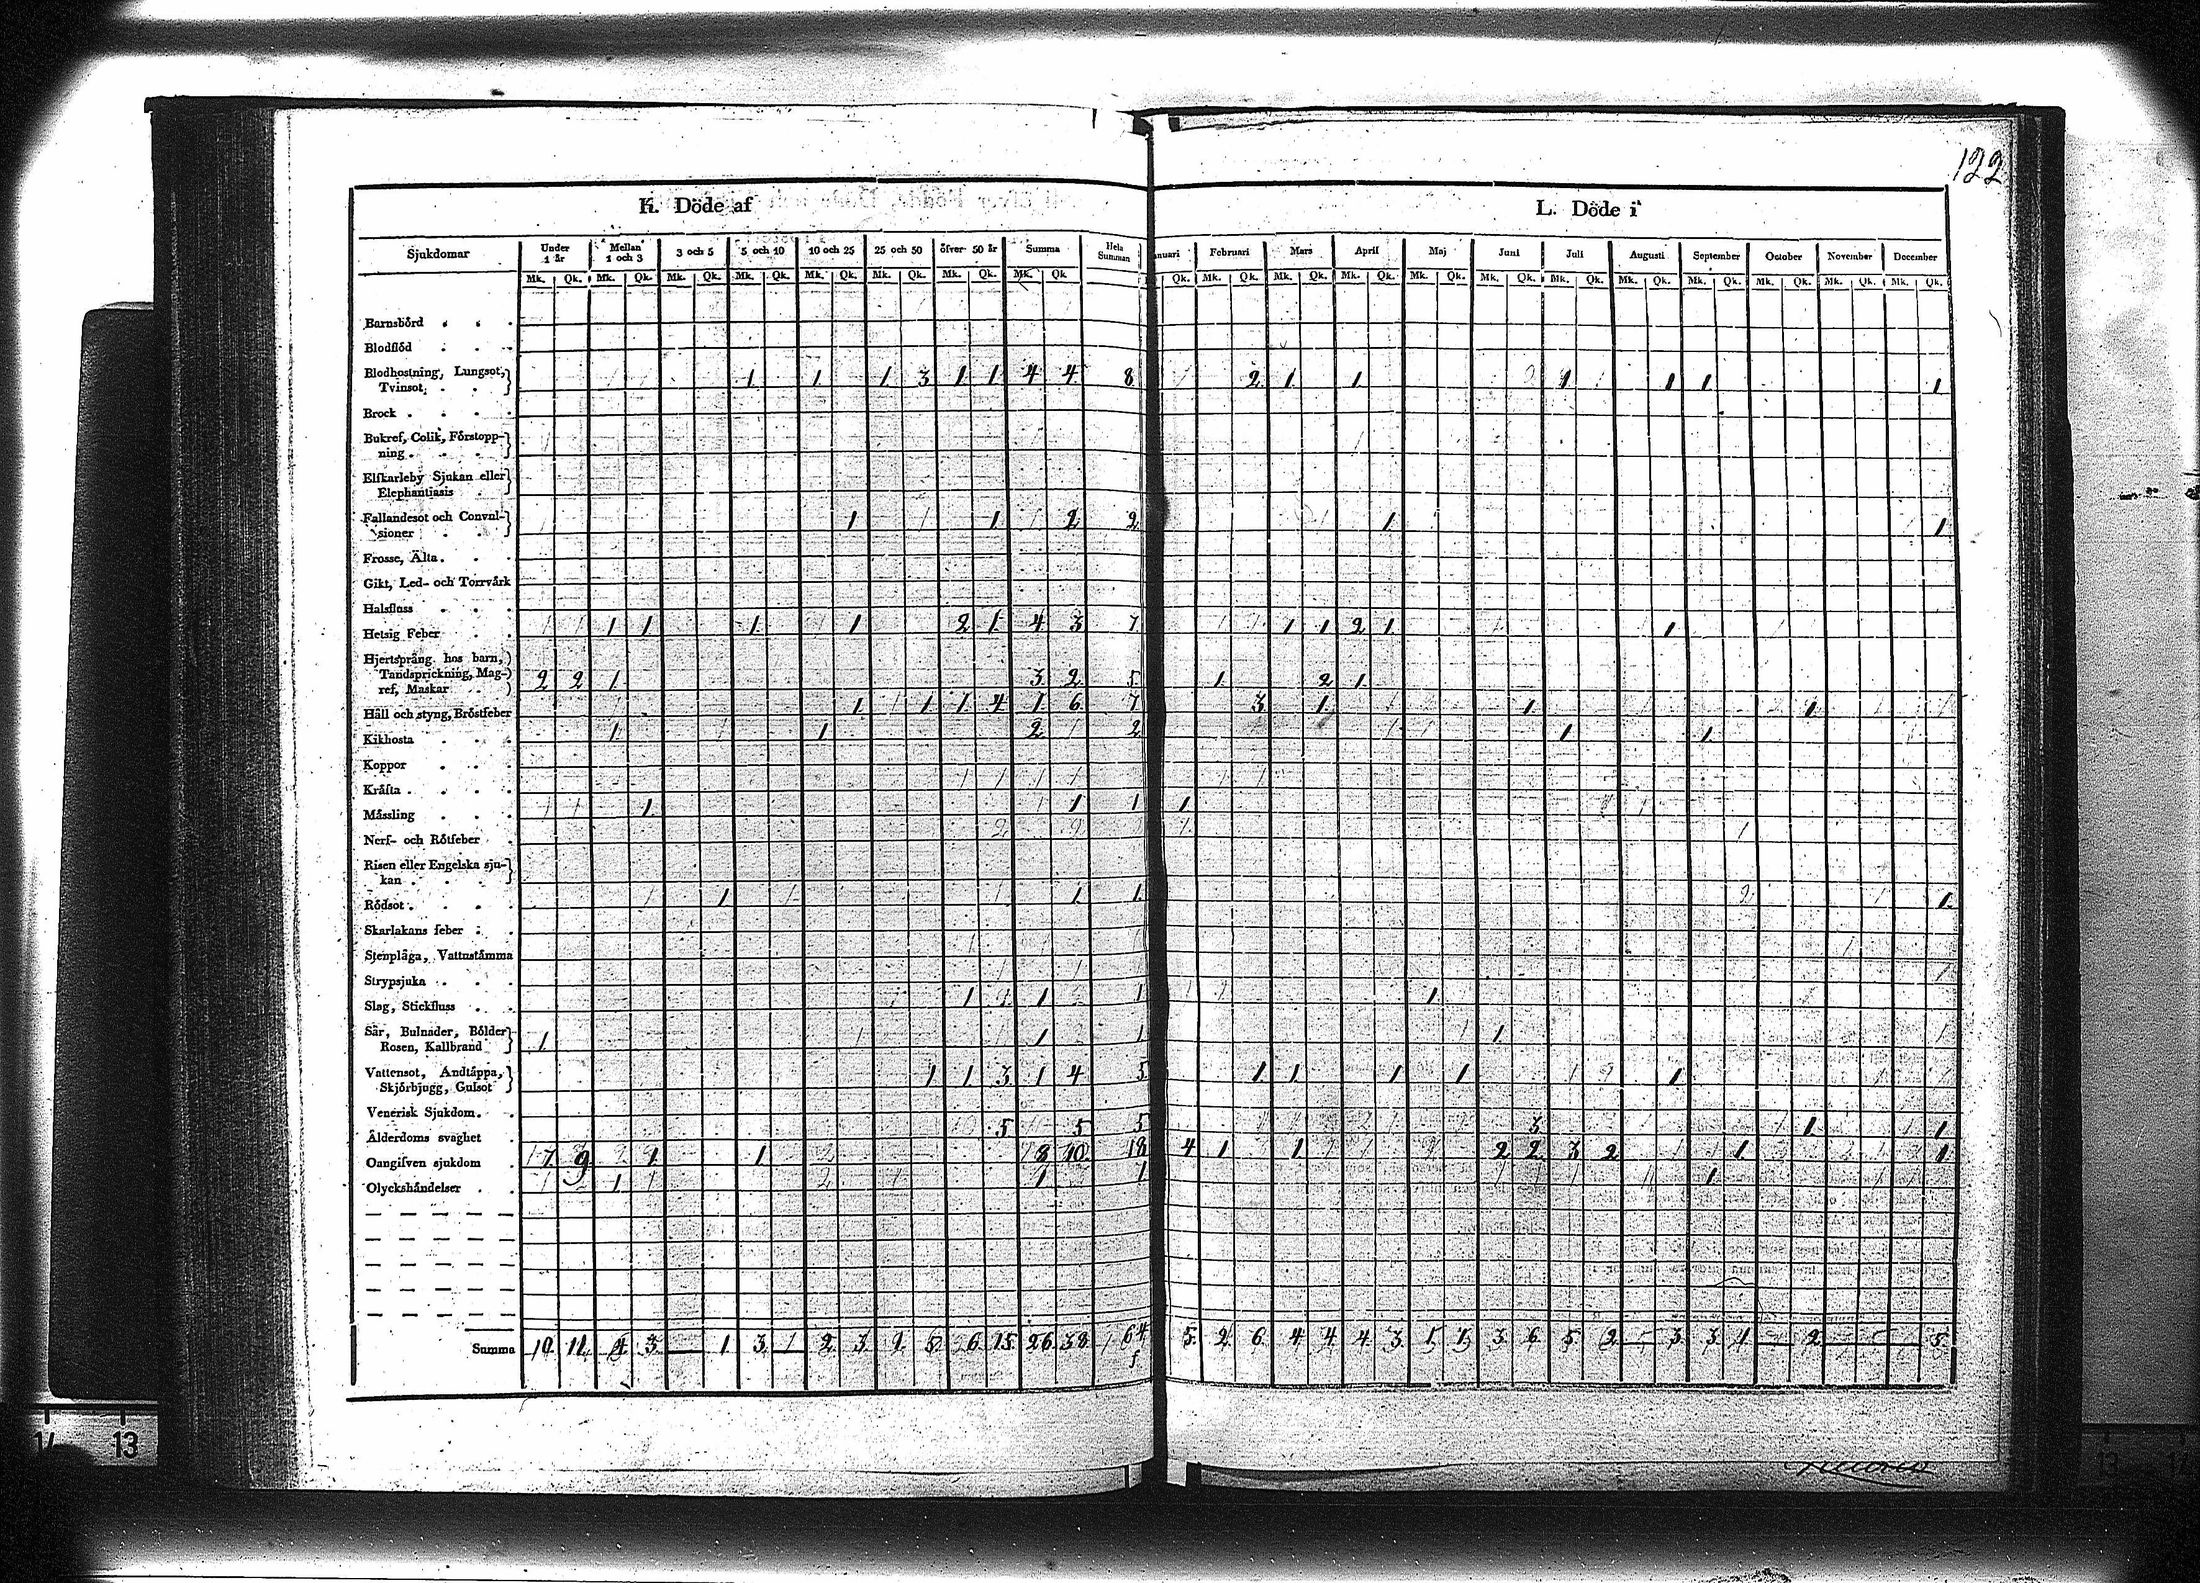 122
K. Döde af
L. Döde i
Sjukdomar Under 1 år Mellan 1 och 3 3 och 5 5 och 10 10 och 25 25 och 50 öfver 50 år Summa Hela Summan
Mk. Qk. Mk. Qk. Mk. Qk. Mk. Qk. Mk. Qk. Mk. Qk. Mk. Qk. Mk. Qk.
nuari Februari Mars April Maj Juni Juli Augusti September October November December
Qk. Mk. Qk. Mk. Qk. Mk. Qk. Mk. Qk. Mk. Qk. Mk. Qk. Mk. Qk. Mk. Qk. Mk. Qk. Mk. Qk. Mk. Qk.
Barnsbörd
Blodflöd
Blodhostning, Lungsot,
Tvinsot. 1. 1. 1. 3. 1. 1. 4. 4. 8. 2. 1. 1. 1. 1. 1. 1.
Brock
Bukref, Colik, Förstopp-
ning
Elfkarleby Sjukan eller
Elephantiasis
Fallandesot och Convul-
sioner 1. 1. 2. 2. 1. 1.
Frosse, Älta
Gikt, Led- och Torrvärk
Halsfluss
Hetsig Feber 1. 1. 1. 1. 2. 1. 4. 3. 7. 1. 1. 2. 1. 1.
Hjertsprång hos barn,
Tandsprickning, Mag-
ref, Maskar 2. 2. 1. 3. 2. 5. 1. 2. 1.
Håll och styng, Bröstfeber 1. 1. 1. 4. 1. 6. 7. 3. 1. 1. 1.
Kikhosta 1. 1. 2. 2. 1. 1.
Koppor
Kräfta
Mässling 1. 1. 1. 1.
Nerf- och Rötfeber
Risen eller Engelska sju-
kan
Rödsot 1. 1. 1. 1.
Skarlakans feber
Stenplåga, Vattustämma
Strypsjuka
Slag, Stickfluss 1. 1. 1. 1.
Sår, Bulnader, Bölder
Rosen, Kallbrand 1. 1. 1. 1.
Vattensot, Andtäppa,
Skjörbjugg, Gulsot 1. 1. 3. 1. 4. 5. 1. 1. 1. 1. 1.
Venerisk Sjukdom
Ålderdoms svaghet 5. 5. 5. 3. 1. 1.
Oangifven sjukdom 7. 9. 1. 1. 8. 10. 18. 4. 1. 1. 2. 2. 3. 2. 1. 1.
Olyckshändelser 1. 1. 1. 1.
Summa 10. 11. 4. 3. — 1. 3. — 2. 3. 1. 5. 6. 15. 26. 38. 64 5. 2. 6. 4. 4. 4. 3. 1. 1. 3. 6. 5. 2. — 3. 3. 1. — 2. — — — 5.
14 13
13